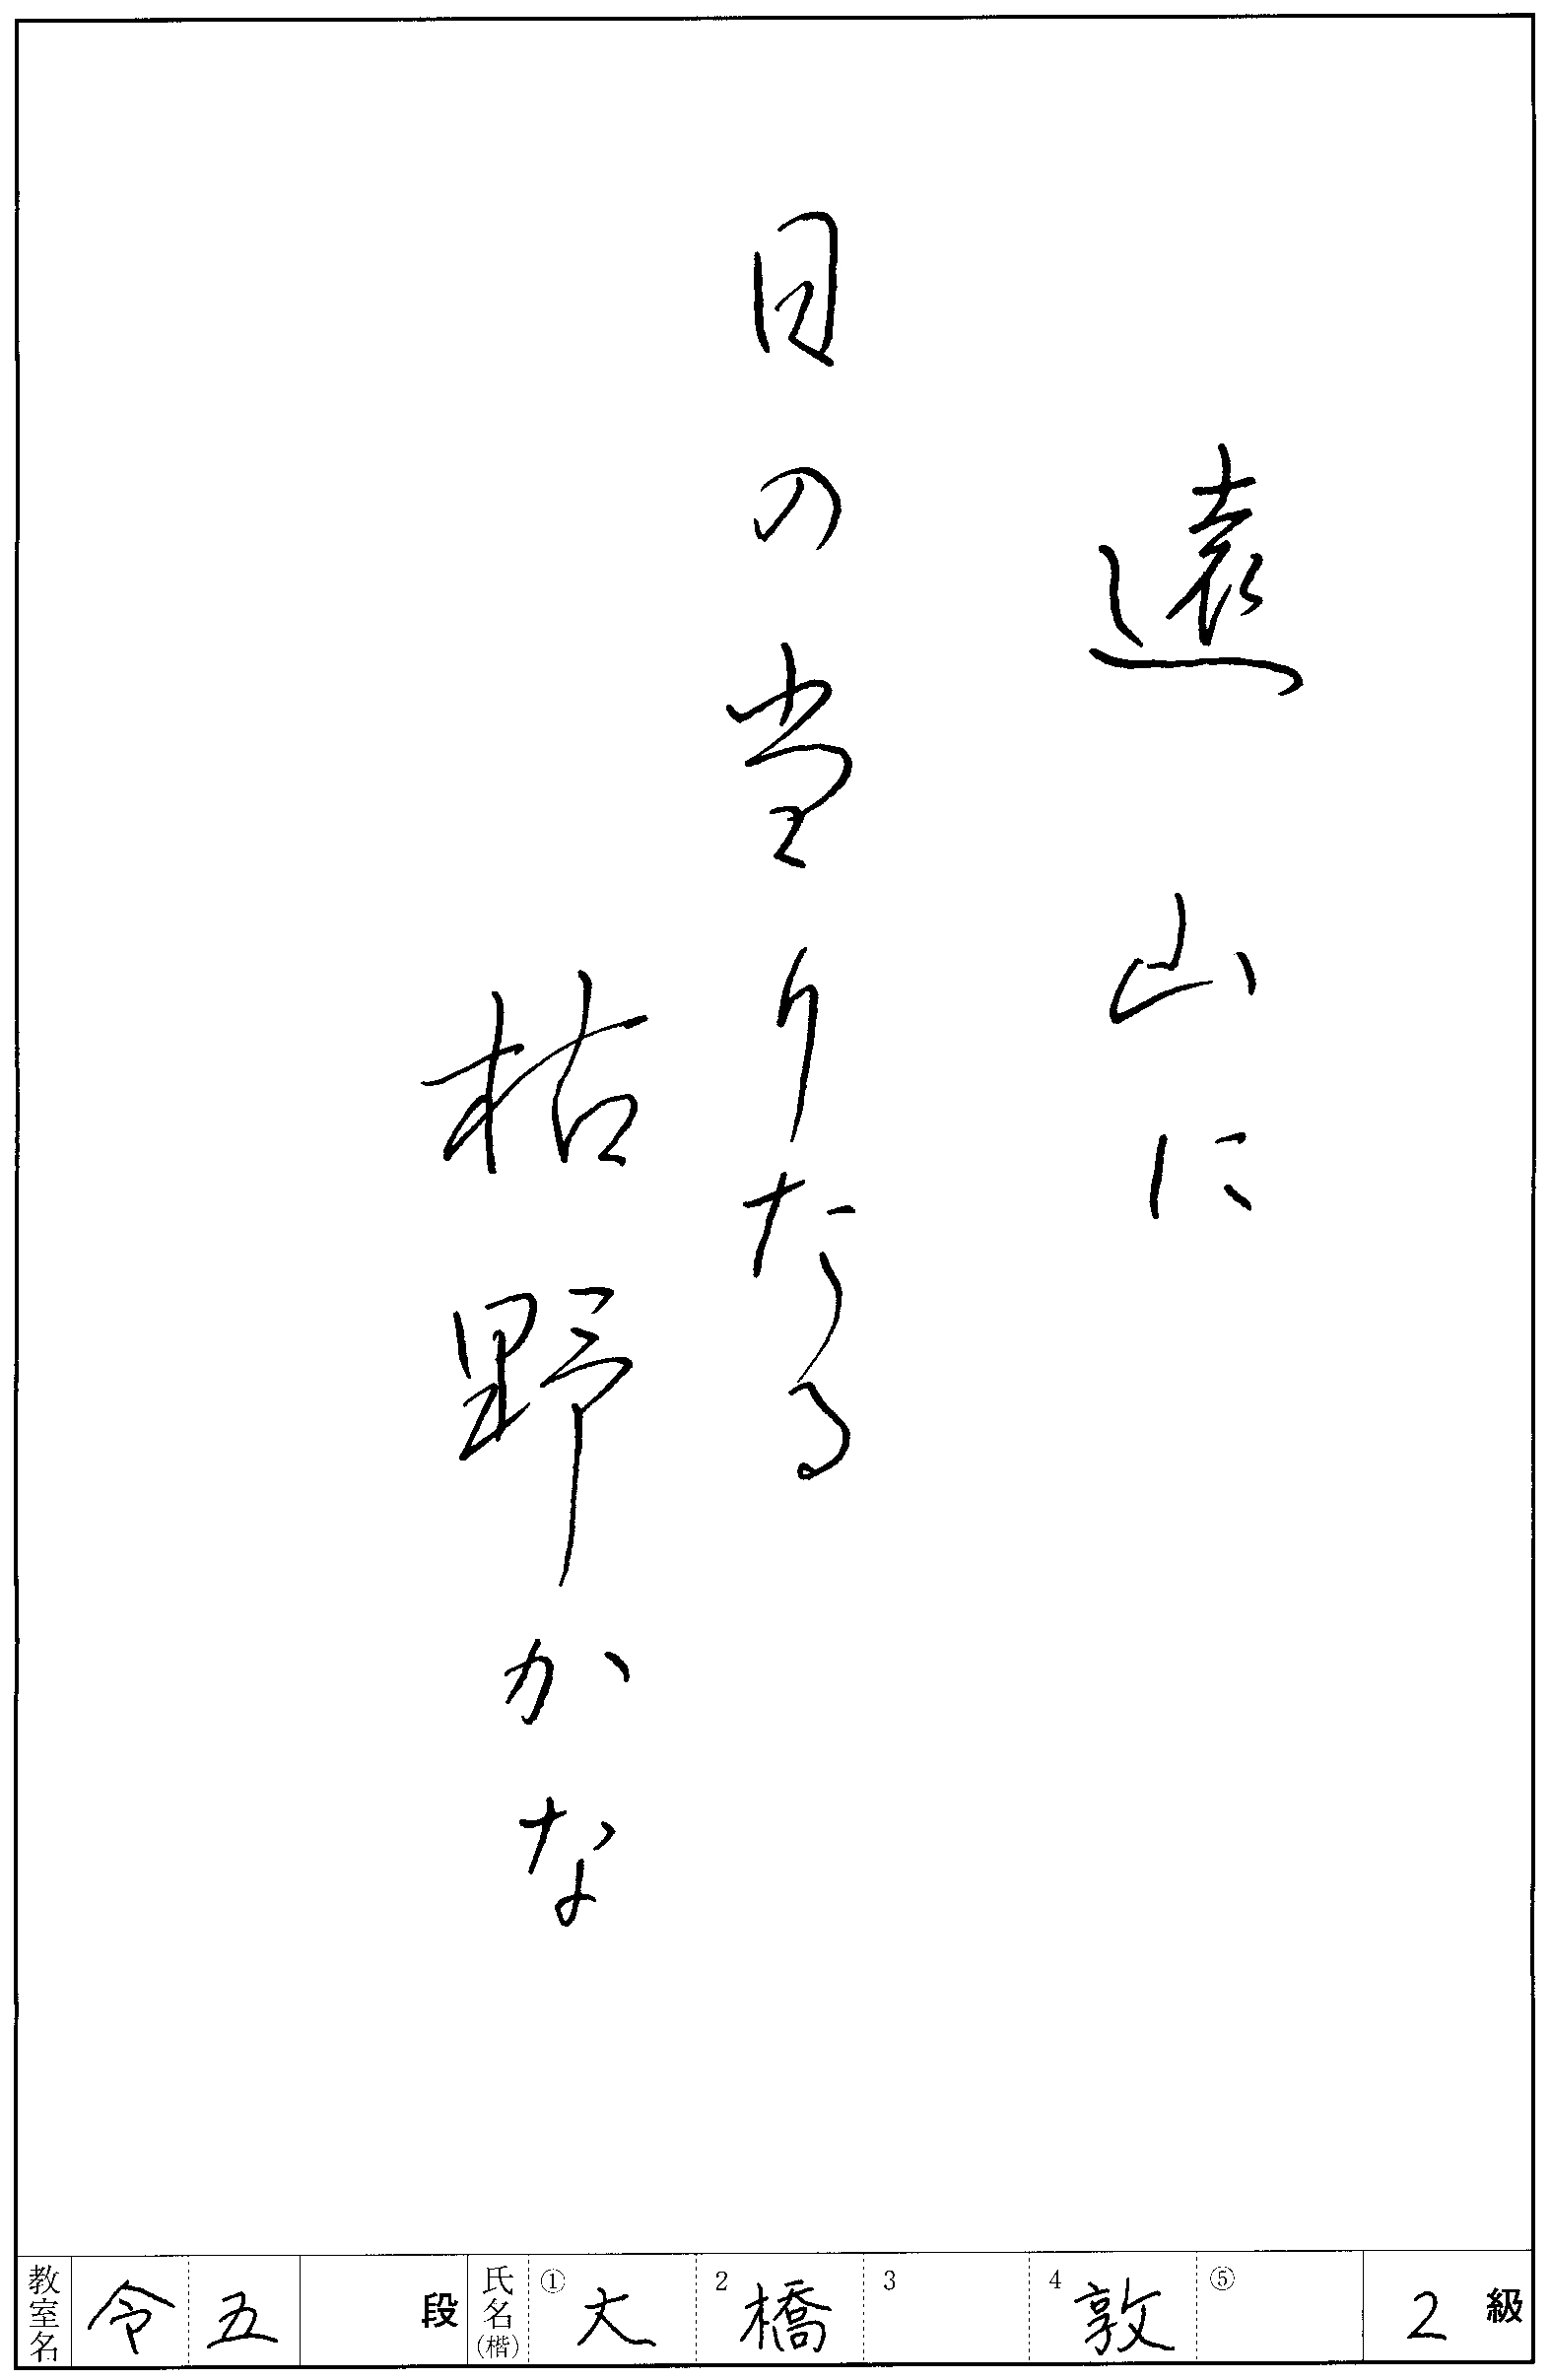 遠山に
日の当りたる
枯野かな
教室名 令五 段 氏名(楷) ①大 2橋 3 4敦 ⑤ 2級